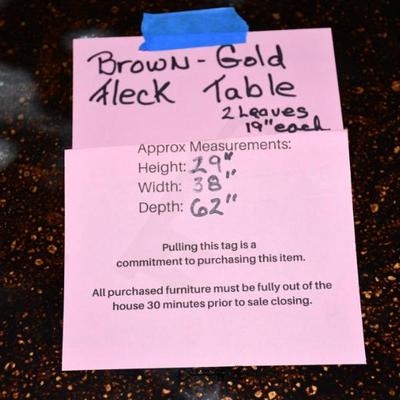 Brown - Gold
Fleck Table
2 Leaves
19" each
Approx Measurements:
Height: 29"
Width: 38"
Depth: 62"
Pulling this tag is a
commitment to purchasing this item.
All purchased furniture must be fully out of the
house 30 minutes prior to sale closing.